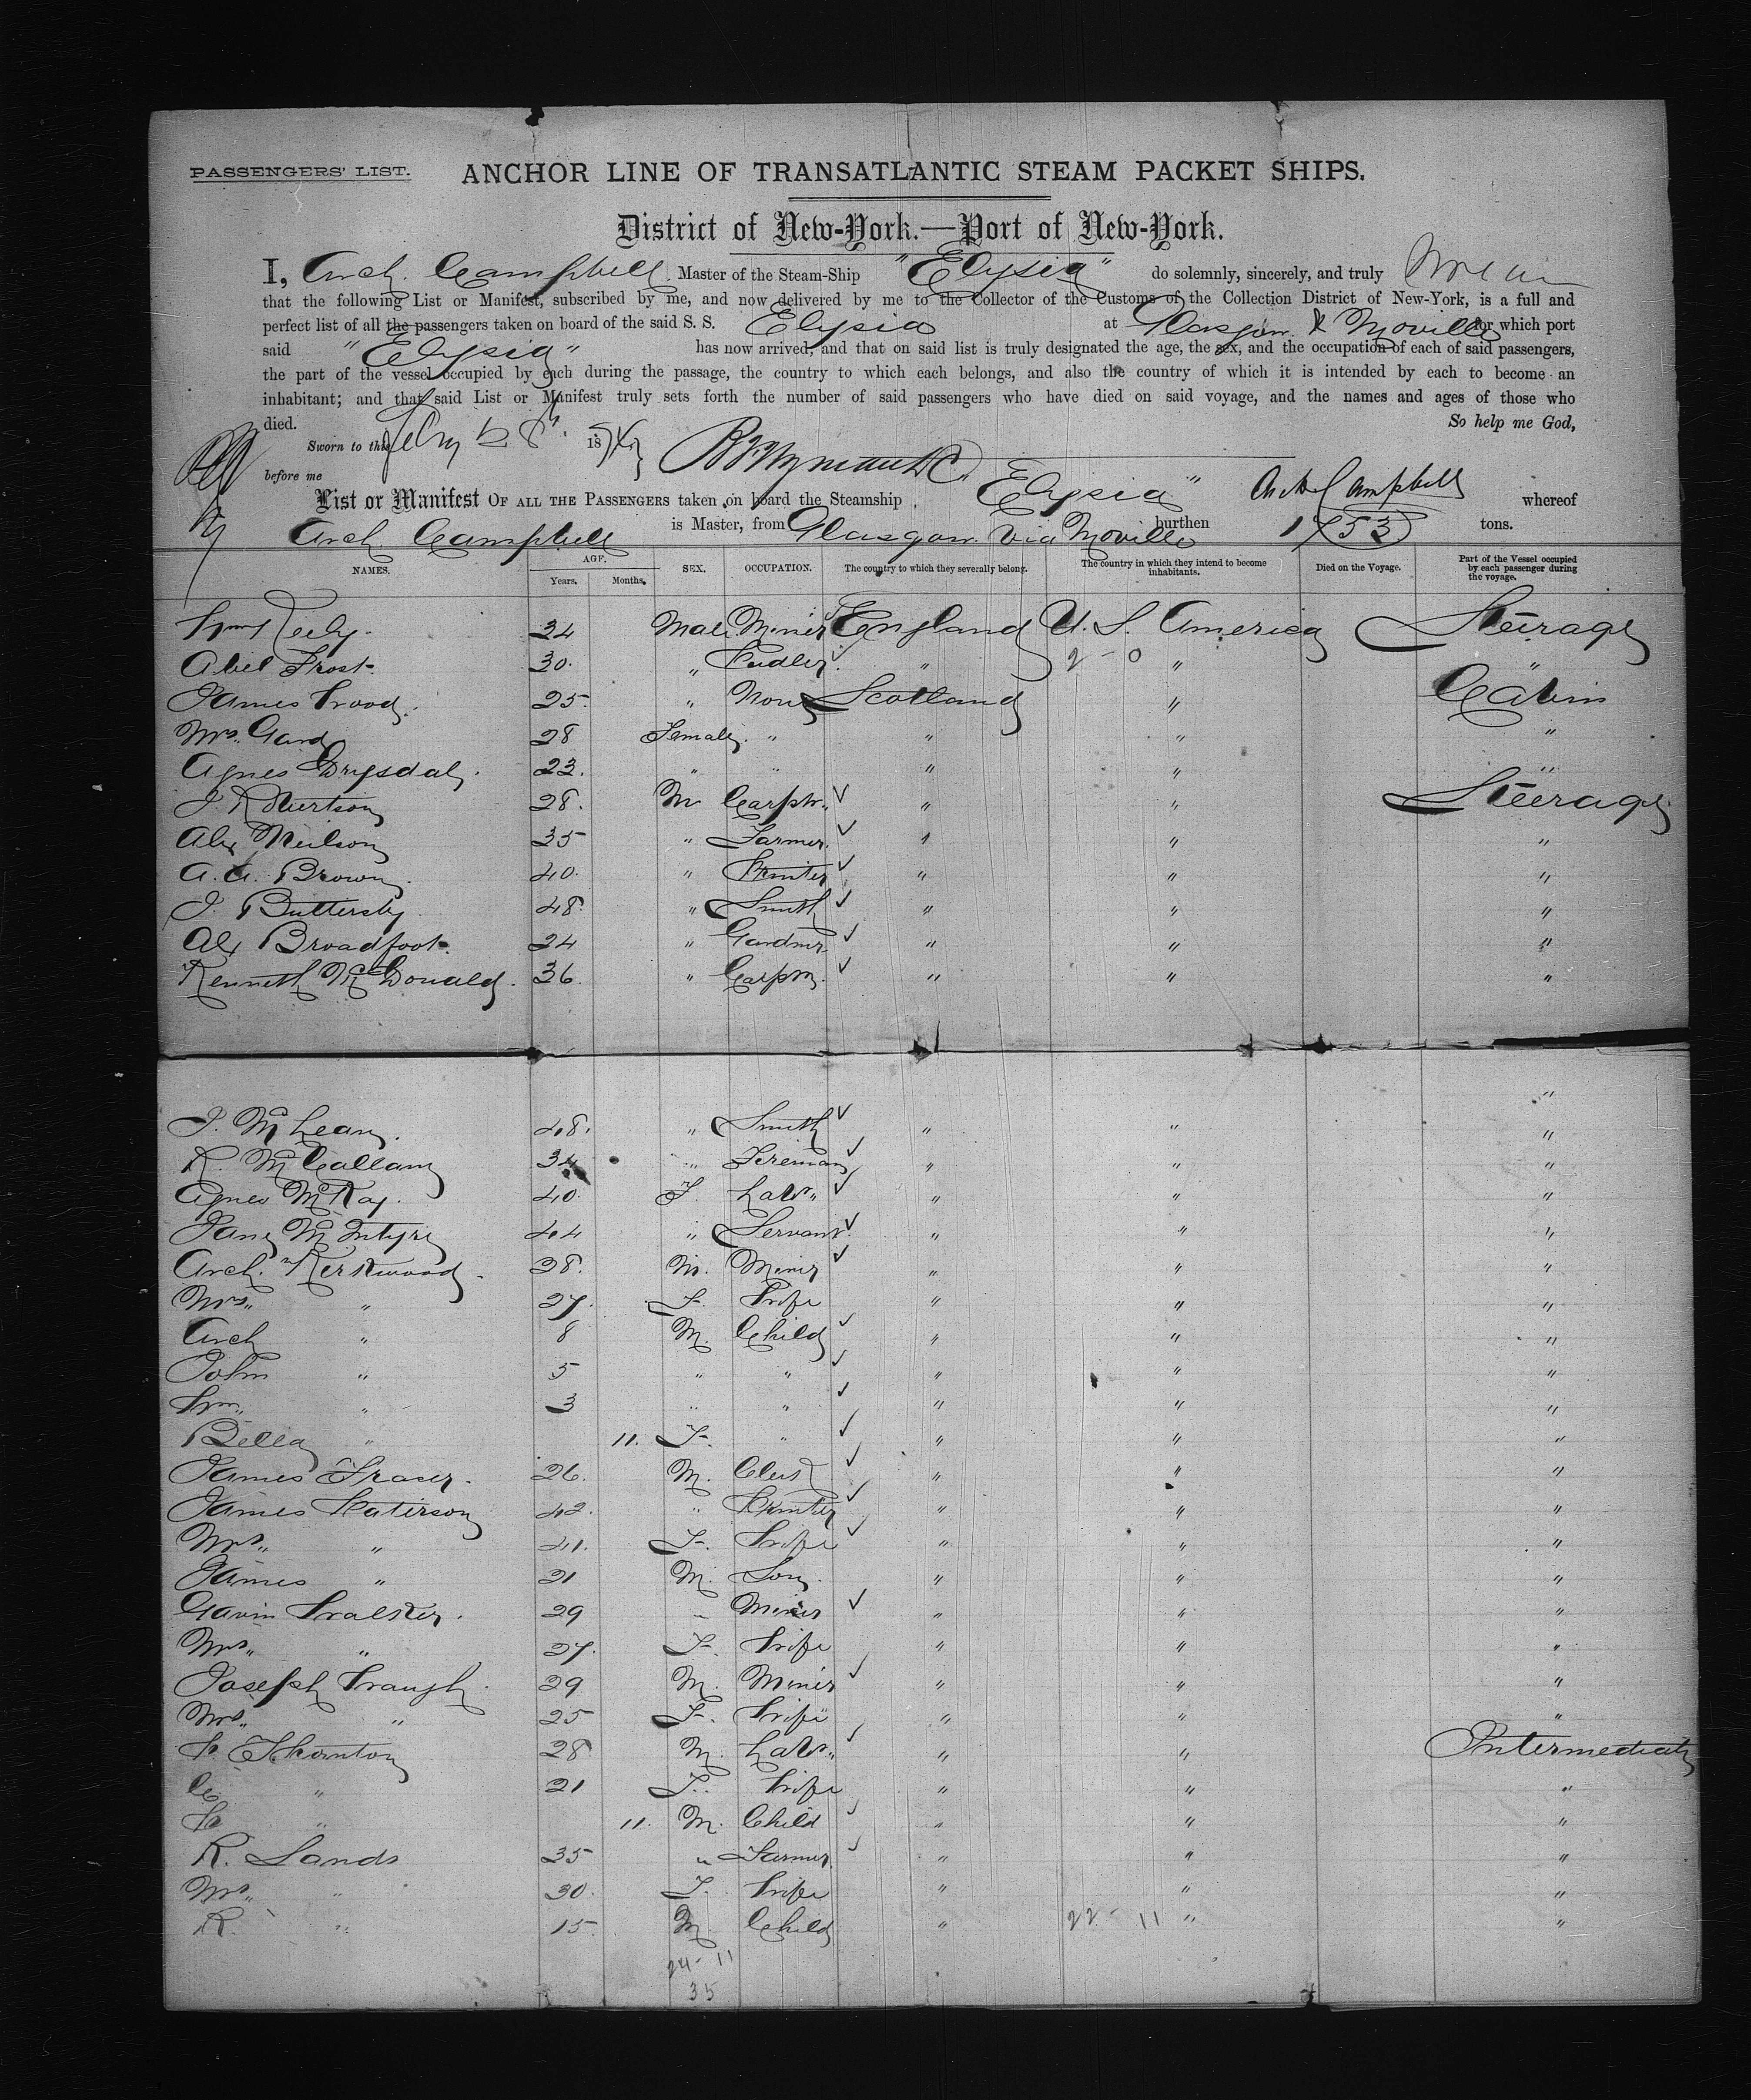 PASSENGERS' LIST. ANCHOR LINE OF TRANSATLANTIC STEAM PACKET SHIPS.
District of New-York.—Port of New-York.
I, Arch. Campbell Master of the Steam-Ship "Elysia" do solemnly, sincerely, and truly
that the following List or Manifest, subscribed by me, and now delivered by me to the Collector of the Customs of the Collection District of New-York, is a full and
perfect list of all the passengers taken on board of the said S. S. Elysia at Glasgow & Moville for which port
said "Elysia" has now arrived, and that on said list is truly designated the age, the sex, and the occupation of each of said passengers,
the part of the vessel occupied by each during the passage, the country to which each belongs, and also the country of which it is intended by each to become an
inhabitant; and that said List or Manifest truly sets forth the number of said passengers who have died on said voyage, and the names and ages of those who
died. So help me God,
Sworn to this Feby 28th 18
before me
List or Manifest OF ALL THE PASSENGERS taken on board the Steamship "Elysia" Arch Campbell whereof
Arch Campbell is Master, from Glasgow via Moville burthen 1753 tons.
NAMES. AGE. Years. Months. SEX. OCCUPATION. The country to which they severally belong. The country in which they intend to become inhabitants. Died on the Voyage. Part of the Vessel occupied by each passenger during the voyage.
Wm Keely. 24 Male Miner England U. S. America Steerage
Abel Frost. 30. " Pudler " 2-0 " "
James Wood. 25. " None Scotland " Cabin
Mrs. Gard 28 Female. " " " "
Agnes Drysdale. 23. " " " " "
J. Robertson 28. M Carptr. " " Steerage
Alex Neilson 35 " Farmer. " " "
A. A. Brown. 40. " Printer " " "
J. Buttersby 48. " Smith " " "
Alex Broadfoot. 24 " Gardner. " " "
Kenneth McDonald. 36. " " " "
"
J. McLean. 48. " Smith " " "
R. McCallam 34 " Fireman " " "
Agnes McKay. 40. F. Labr. " " "
Jane McIntyre 44 " Servant. " " "
Arch. Kirkwood. 28. M. Miner " " "
Mrs. " 27. F. Wife " " "
Arch " 8 M. Child " " "
John " 5 " " " " "
Wm. " 3 " " " " "
Bella " 11. F. " " " "
James Fraser. 26. M. Clerk " " "
James Paterson 42. " Printer " " "
Mrs. " 41. F. Wife " " "
James " 21 M. Son. " " "
Gavin Walker. 29 " Miner " " "
Mrs. " 27. F. Wife " " "
Joseph Waugh. 29 M. Miner " " "
Mrs. " 25 F. Wife " " "
W. Thornton 28 M. Labr. " " Intermediate
C " 21 F. Wife " " "
W " 11. M. Child " " "
R. Sands 35 " Farmer. " " "
Mrs. " 30. F. Wife " " "
R. " 15. M Child " 22-11 " "
24-11
35